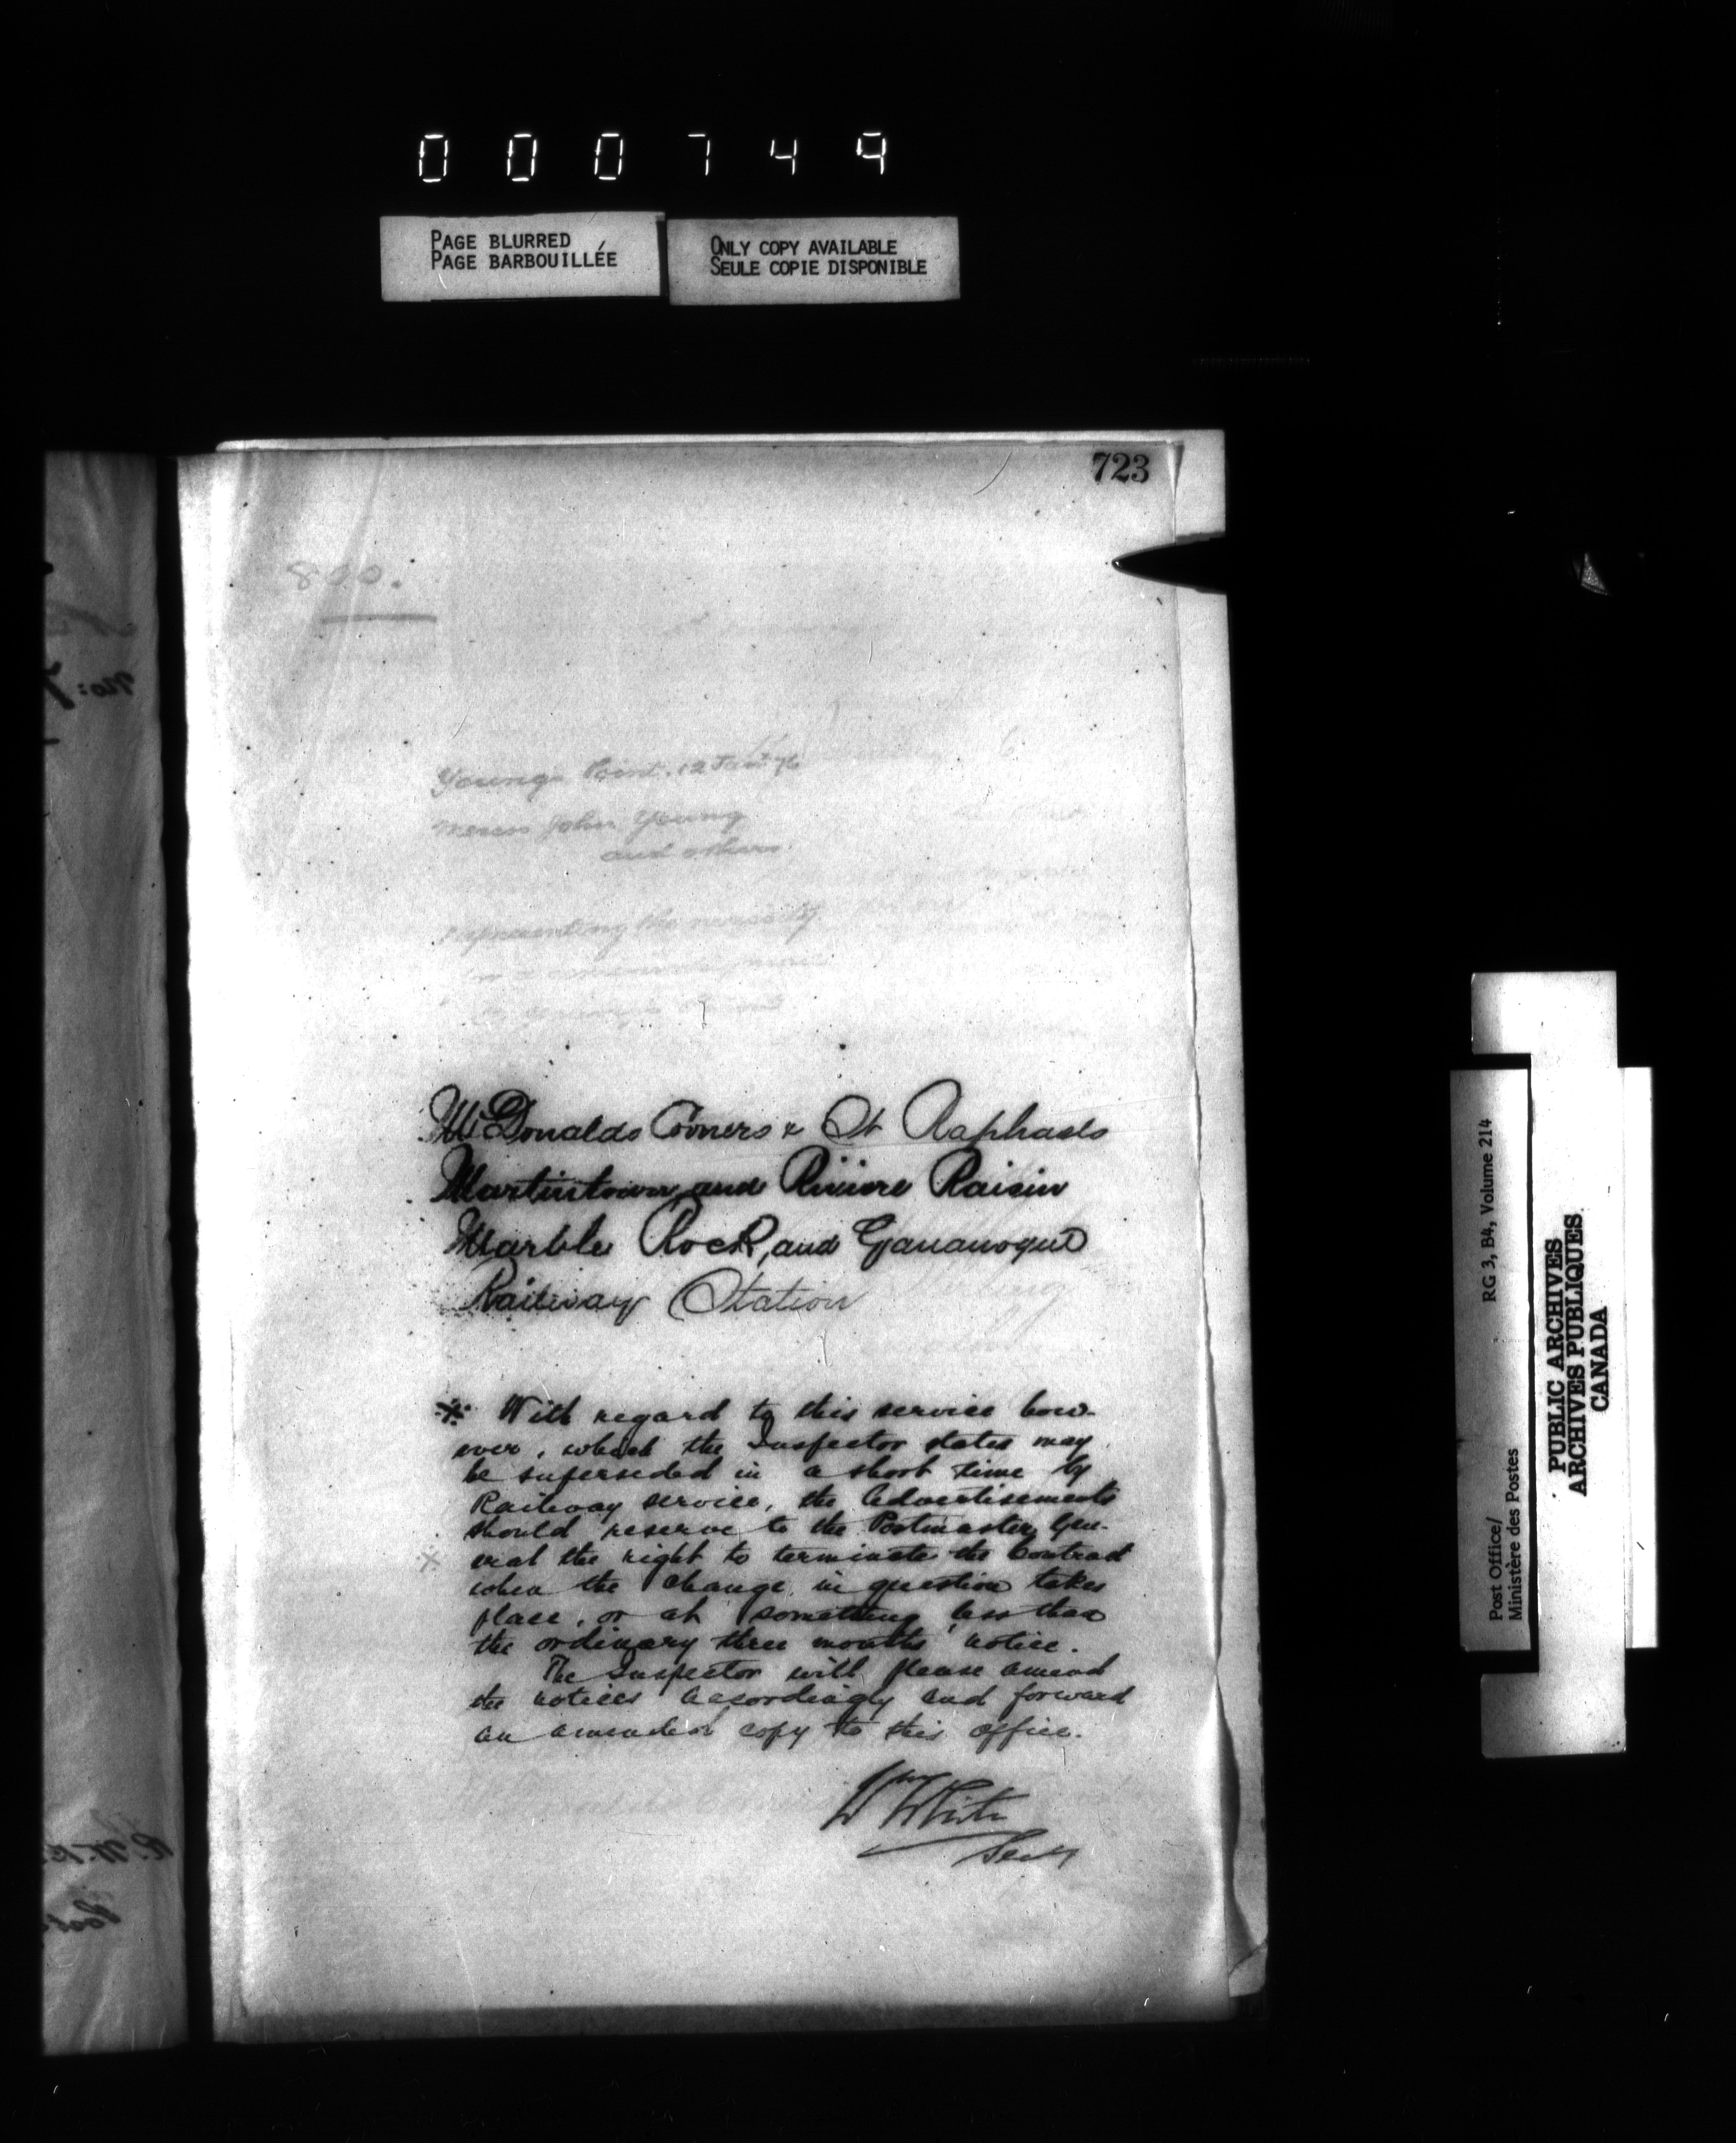 000749
PAGE BLURRED
PAGE BARBOUILLÉE
ONLY COPY AVAILABLE
SEULE COPIE DISPONIBLE
723
800.
Youngs Point. 12 Jany 76
Messrs John Young
and others.
representing the necessity
McDonalds Corners & St Raphaels
Martintown and Riviere Raisin
Marble Rock, and Gananoque
Railway Station
* With regard to this service how-
ever, which the Inspector states may
be superseded in a short time by
Railway service, the Advertisements
should reserve to the Postmaster Gen-
eral the right to terminate the Contract
when the change in question takes
place, or at something less than
the ordinary three months' notice.
The Inspector will please amend
the notices accordingly and forward
an amended copy to this office.
Wm White
Secy
No: 7
R. W. B
Post
Post Office/
Ministère des Postes
RG 3, B4, Volume 214
PUBLIC ARCHIVES
ARCHIVES PUBLIQUES
CANADA